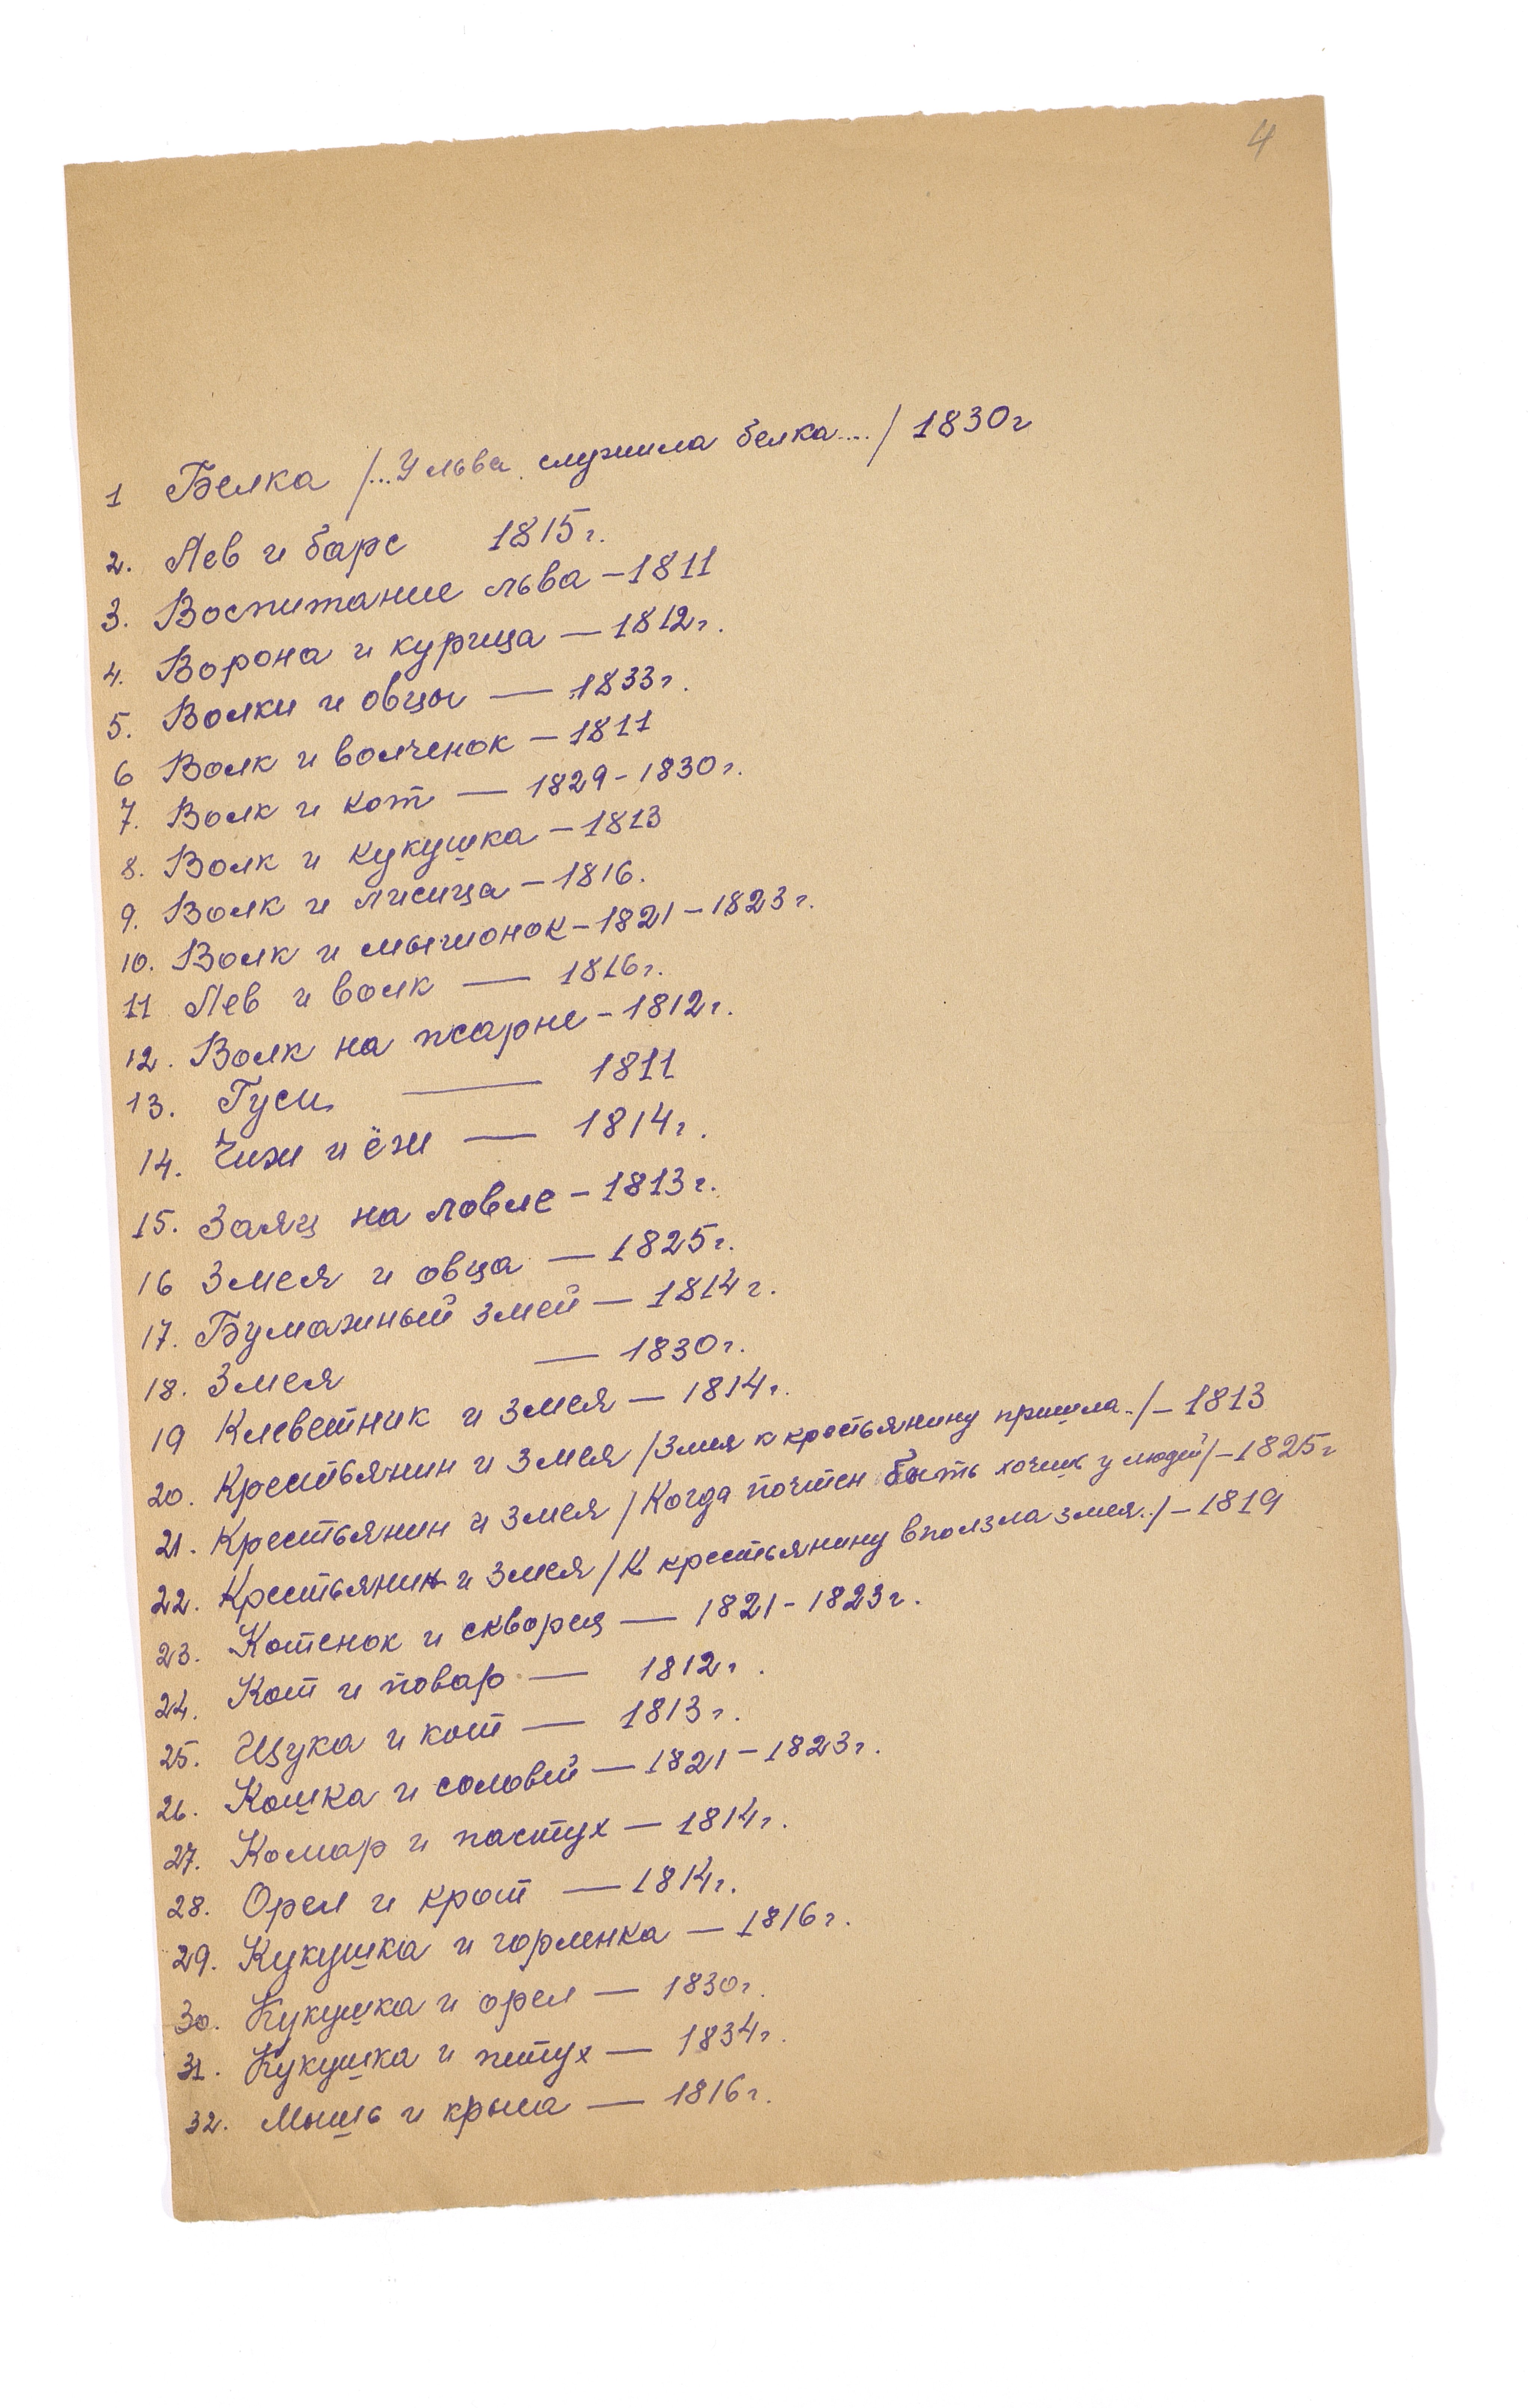 4
1 Белка /...У льва служила белка..../ 1830г
2. Лев и барс 1815г.
3. Воспитание льва – 1811
4. Ворона и курица — 1812г.
5. Волки и овцы — 1833г.
6 Волк и волченок – 1811
7. Волк и кот — 1829 - 1830г.
8. Волк и кукушка – 1813
9. Волк и лисица – 1816.
10. Волк и мышонок – 1821 – 1823г.
11 Лев и волк — 1816г.
12. Волк на псарне – 1812г.
13. Гуси — 1811
14. Чиж и ёж — 1814г.
15. Заяц на ловле – 1813г.
16 Змея и овца — 1825г.
17. Бумажный змей — 1814г.
18. Змея — 1830г.
19 Клеветник и змея — 1814г.
20. Крестьянин и змея /Змея к крестьянину пришла../ – 1813
21. Крестьянин и змея /Когда почтен быть хочешь у людей/ – 1825г
22. Крестьянин и змея /К крестьянину вползла змея../ – 1819
23. Котенок и скворец — 1821 - 1823г.
24. Кот и повар — 1812г.
25. Щука и кот — 1813г.
26. Кошка и соловей — 1821 – 1823г.
27. Комар и пастух — 1814г.
28. Орел и крот — 1814г.
29. Кукушка и горленка — 1816г.
30. Кукушка и орел — 1830г.
31. Кукушка и петух — 1834г.
32. Мышь и крыса — 1816г.